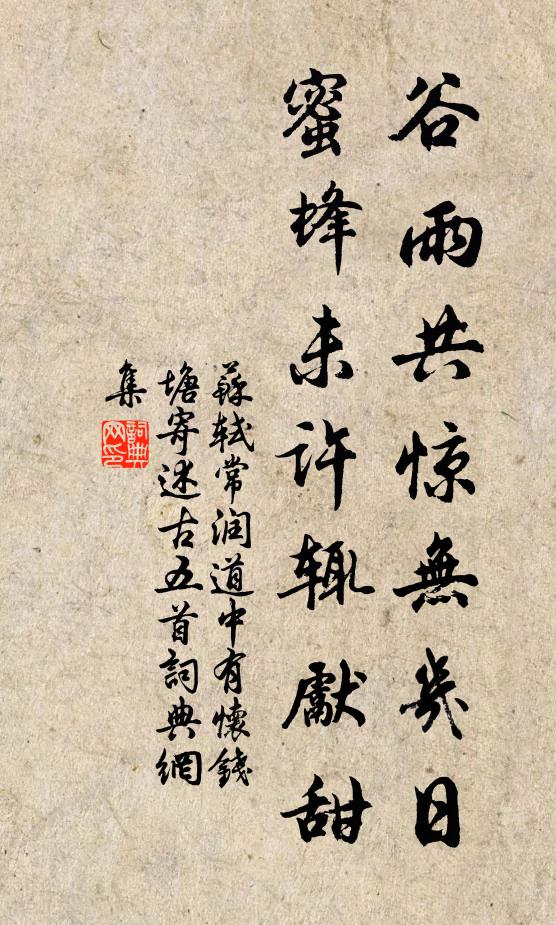 谷雨共惊無幾日
蜜蜂未许辄獻甜
蘇轼常润道中有懷錢
塘寄述古五首詞典網
集
詞典
网印